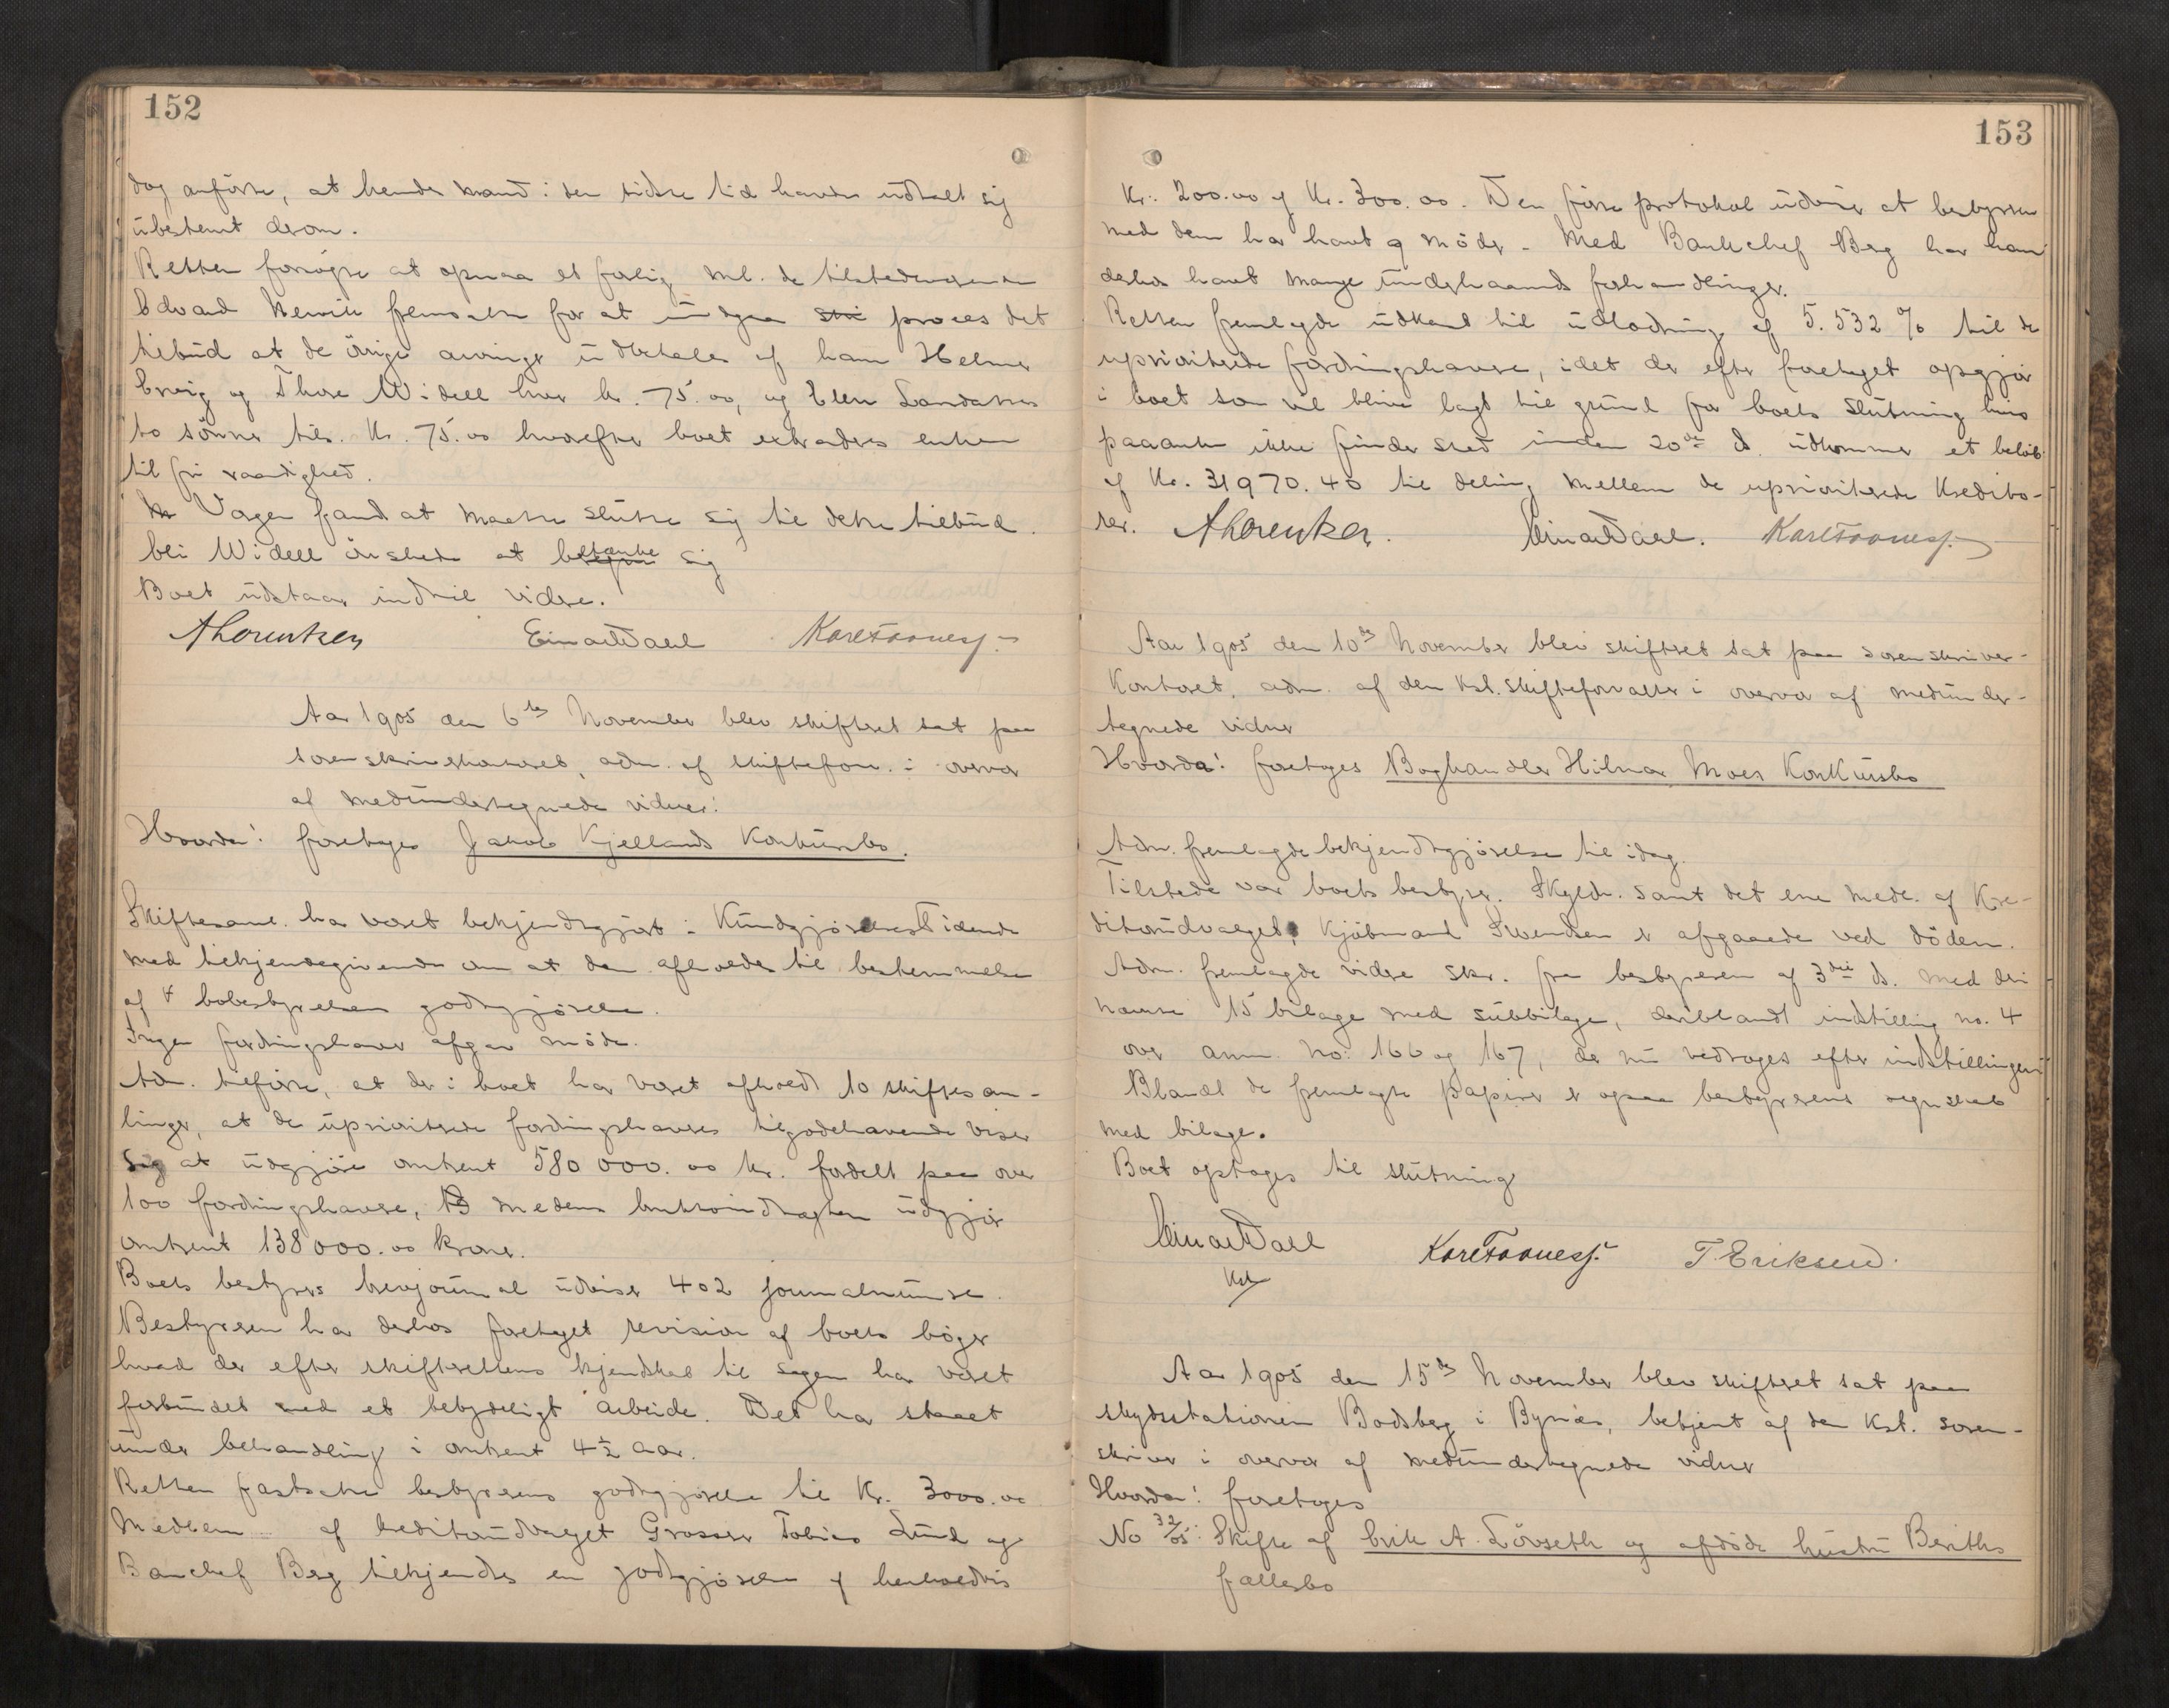 152
dog anførte, at hendes mand i den sidste tid havde udtalt sig
ubestemt derom.
Retten forsøgte at opnaa et forlig ml. de tilstedeværende
Edvard fremsatte for at undgaa proces det
tilbud at de øvrige arvinger udbetales af ham Helmer
og Thore Widell hver kr. 75.00, og Ellen Landaas
to sønner tils. Kr. 75.00 hvorefter boet extraderes enken
til fri raadighed.
Vergen fandt at maatte slutte sig til dette tilbud.
Eli Widell ønskede at betænke sig
Boet udstaar indtil videre.
A Lorentzen Einar Dahl Karl Foosnæs.
Aar 1905 den 6te November blev skifteret sat paa
sorenskriverkontoret, adm. af skifteforv. i overvær
af medundertegnede vidner:
Hvorda! foretoges Jakob Kjellands Konkursbo.
Skiftesaml. har været bekjendtgjort i KundgjørelsesTidende
med tilkjendegivende om at den afholdes til bestemmelse
af bobestyrelsens godtgjørelse.
Ingen fordringshaver afgav møde.
Adm. tilførte, at der i boet har været afholdt 10 skiftesam-
linger, at de uprioriterede fordringshaveres tilgodehavende viser
sig at udgjøre omtrent 580 000.00 kr. fordelt paa over
100 fordringshavere, medens bruttoindtægten udgjør
omtrent 138000.00 kroner.
Boets bestyrers brevjournal udviser 402 journalnumre.
Bestyreren har derhos foretaget revision af boets bøger
hvad der efter skifterettens kjendskab til sagen har været
forbundet med et betydeligt arbeide. Det har staaet
under behandling i omtrent 4½ aar.
Retten fastsatte bestyrerens godtgjørelse til Kr. 3000.00
Medlem af kreditorudvalget Grosser Tobias Lund og
Banchef Berg tilkjendes en godtgjørelse af henholdvis
153
Kr. 200.00 og Kr. 300.00. Den førte protokol udviser at bestyreren
med dem har havt 9 møder. Med Bankchef Berg har han
derhos havt mange underhaands forhandlinger.
Retten fremlagde udkast til udlodning af 5.532 % til de
uprioriterede fordringshavere, idet der efter foretaget opgjør
i boet som vil blive lagt til grund for boets slutning hvis
paaanke ikke finder sted inden 20de ds. udkommer et beløb
af Kr. 31970.40 til deling mellem de uprioriterede Kredito-
rer. A Lorentzen. Einar Dahl. Karl Foosnæs.
Aar 1905 den 10de November blev skifteret sat paa sorenskriver-
Kontoret, adm. af den kst. skifteforvalter i overvær af medunder-
tegnede vidner
Hvorda! foretoges Boghandler Hilmar Moes Konkursbo
Adm. fremlagde bekjendtgjørelse til idag.
Tilstede var boets bestyrer. Skyldn. samt det ene medl. af Kre-
ditorudvalget, Kjøbmand Svendsen er afgaaede ved døden.
Adm. fremlagde videre skr. fra bestyreren af 3die ds. med deri
nævnte 15 bilage med subbilage, deriblandt indstilling no. 4
over anm. no: 166 og 167, der nu vedtoges efter indstillingen
Blandt de fremlagte papirer er ogsaa bestyrerens regnskab
med bilage.
Boet optoges til slutning
Einar Dahl Karl Foosnæs. T. Eriksen.
Kst
Aar 1905 den 15de November blev skifteret sat paa
skydsstationen Bodsberg i Bynæs, betjent af den kst. soren-
skriver i overvær af medundertegnede vidner
Hvorda! foretoges
No 32/05: Skifte af Erik A. Løvseth og afdøde hustru Beriths
fællesbo